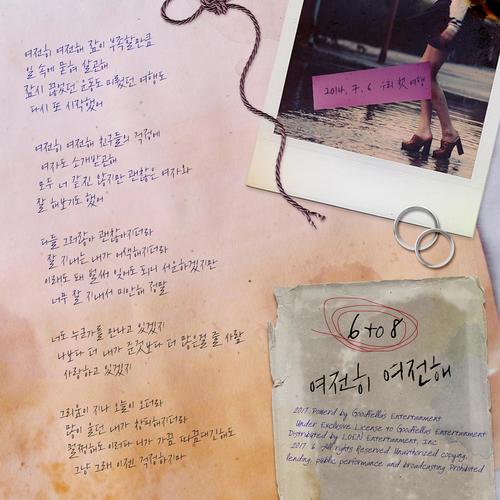 여전히 여전해 잠이 부족할만큼
일 속에 묻혀 살곤해
잠시 끊었던 운동도 미뤘던 여행도
다시 또 시작했어
여전히 여전해 친구들의 걱정에
여자도 소개받곤해
모두 너 같진 않지만 괜찮은 여자와
잘 해보기도 했어
다들 그러잖아 괜찮아지더라
잘 지내는 내가 어색해지더라
이래도 돼 벌써 잊어도 되니 서운하겠지만
너무 잘 지내서 미안해 정말
너도 누군가를 만나고 있겠지
나보다 더 내가 준것보다 더 많은걸 줄 사람
사랑하고 있겠지
그리움이 지나 오늘이 오더라
많이 울던 내가 창피해지더라
멀쩡해도 이러다 니가 가끔 따끔대긴해도
그냥 그래 이젠 걱정하지마
2014. 7. 6 우리 첫 여행
6 to 8
여전히 여전해
2017. Powered by Goodfellas Entertainment
Under Exclusive License to Goodfellas Entertainment
Distributed by LOEN Entertainment, Inc
2017. 6. All rights Reserved. Unauthorized copying,
lending, public performance and broadcasting Prohibited